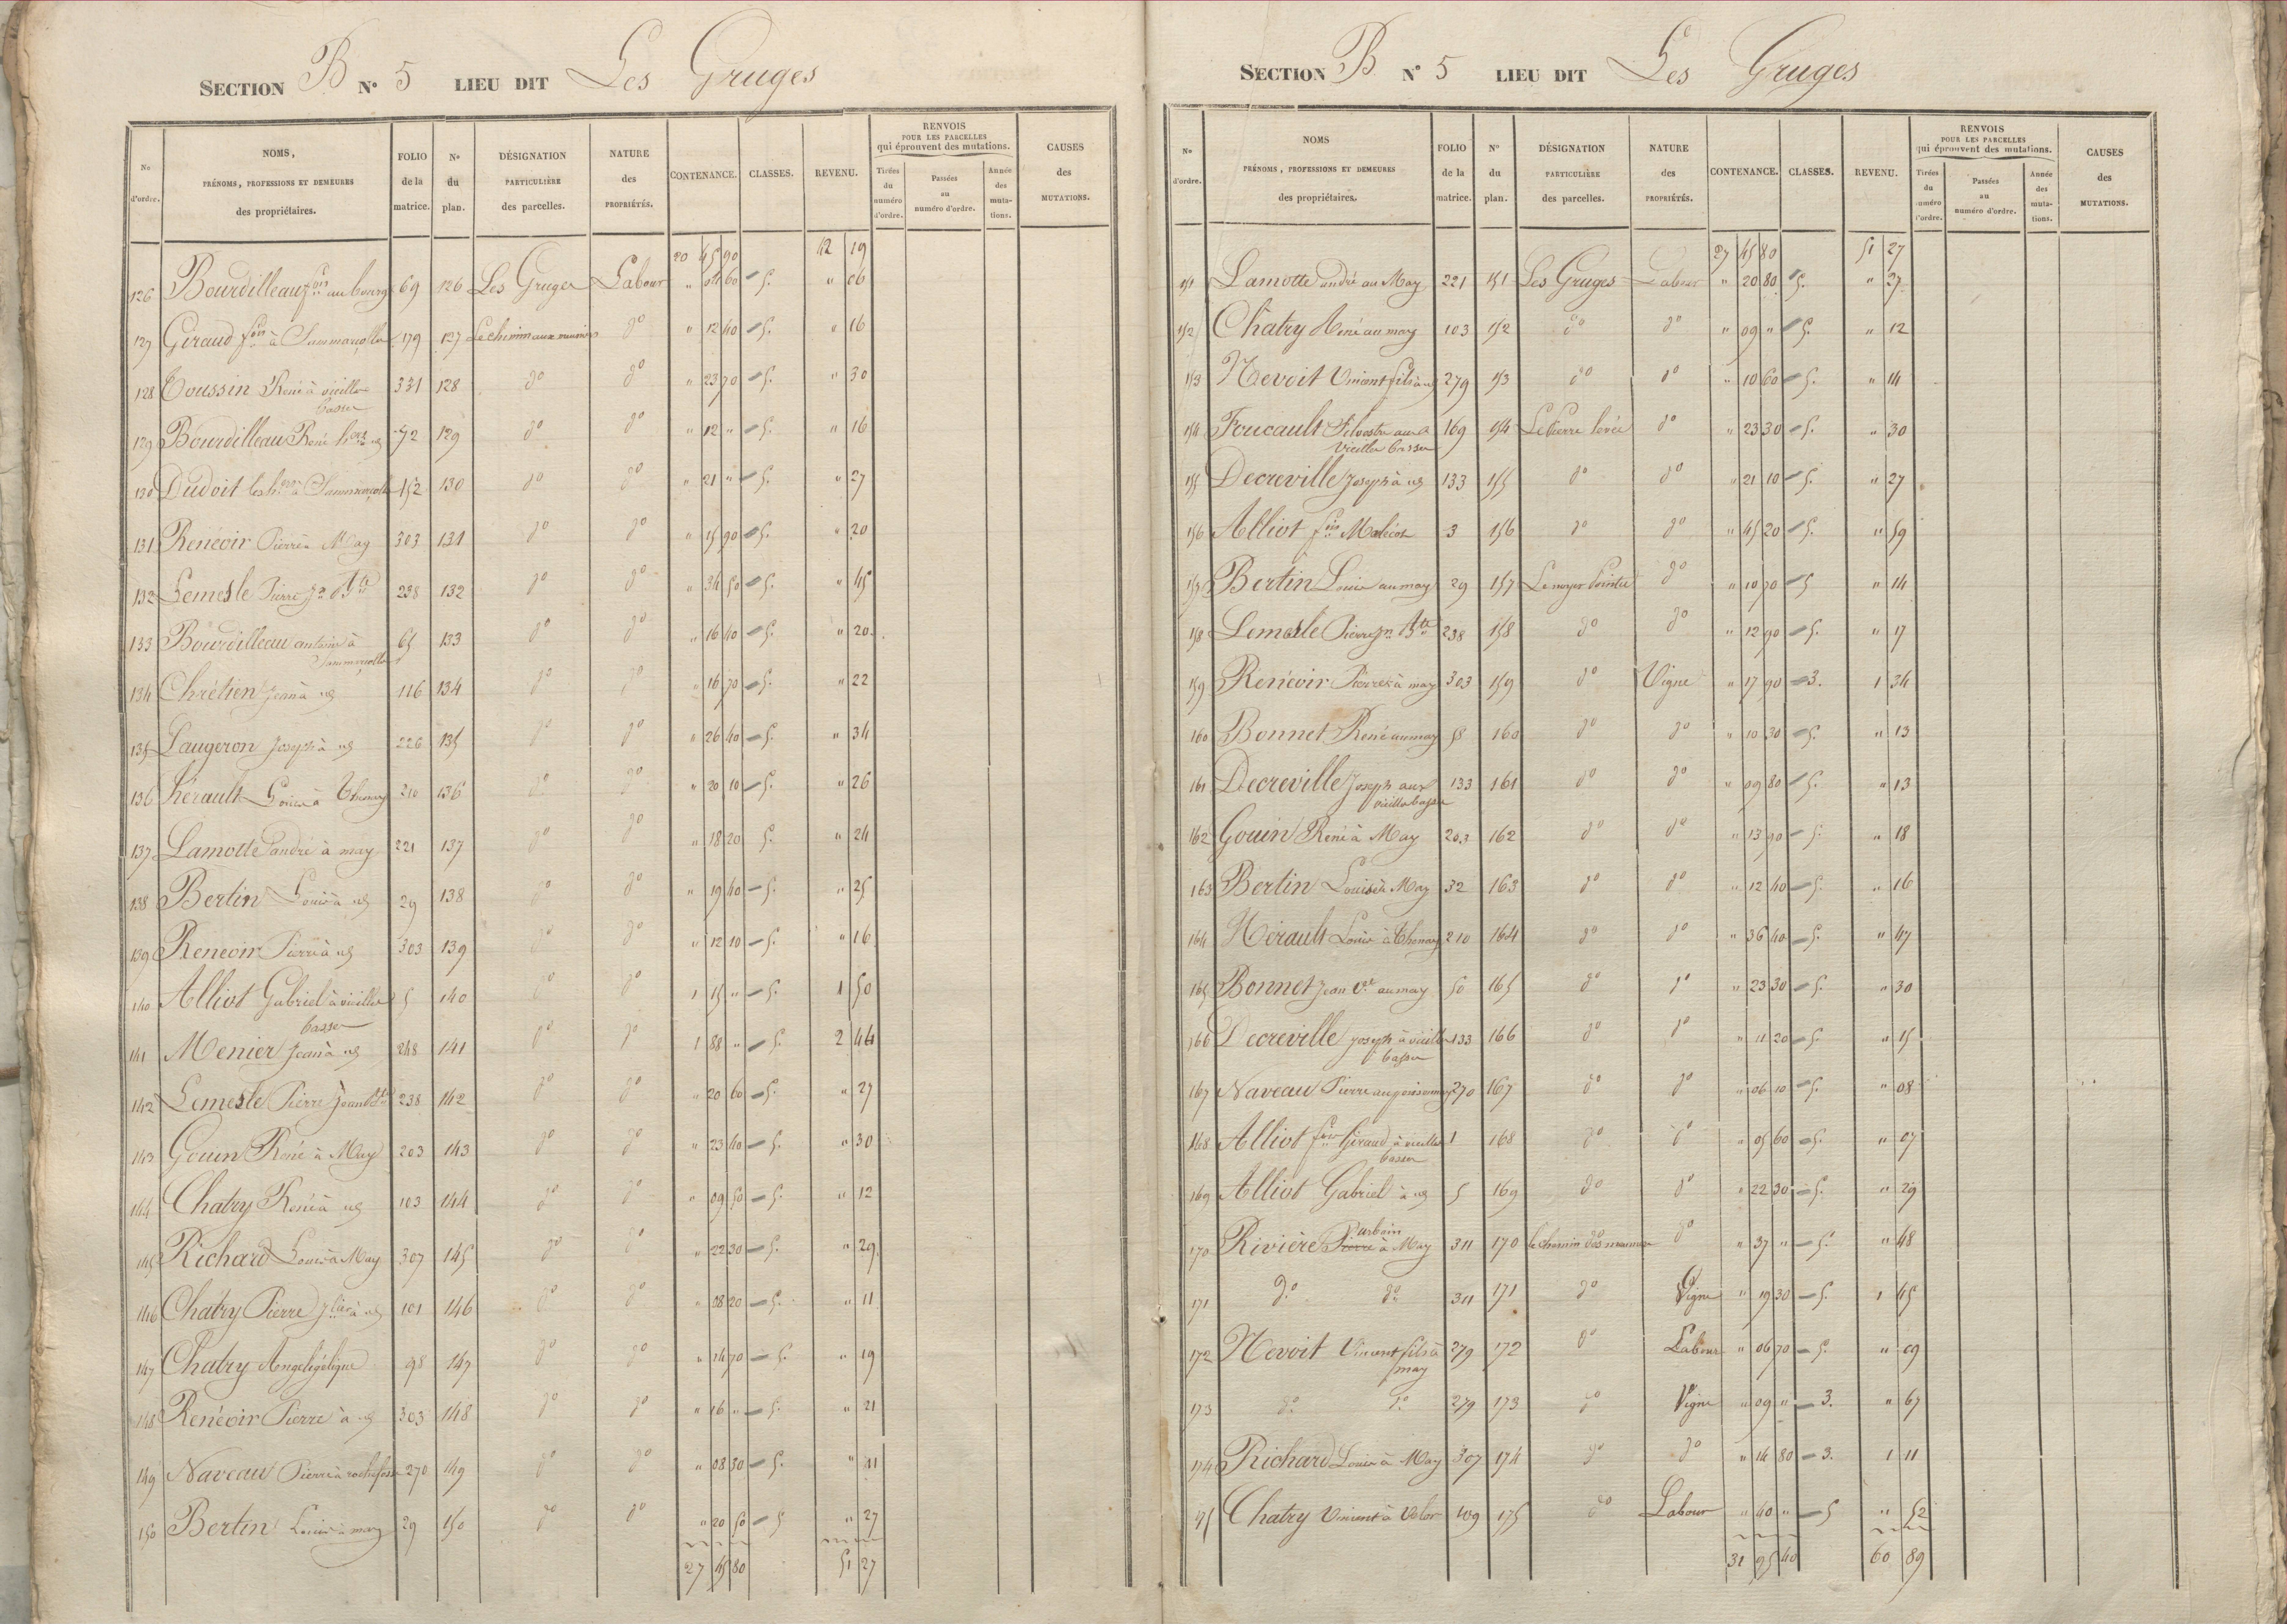 SECTION B N° 5 LIEU DIT Les Gruges
Nos d'ordre. NOMS, PRÉNOMS, PROFESSIONS ET DEMEURES des propriétaires. FOLIO de la matrice. No du plan. DÉSIGNATION PARTICULIÈRE des parcelles. NATURE des PROPRIÉTÉS. CONTENANCE. CLASSES. REVENU. RENVOIS POUR LES PARCELLES qui éprouvent des mutations. Tirées du numéro d'ordre. Passées au numéro d'ordre. Année des mutations. CAUSES des MUTATIONS.
20 45 90 42 19
126 Bourdilleau fois au bourg 69 126 Les Gruges Labour " 04 60 5. " 06
127 Giraud fois à 179 127 Le chemin aux " do " 12 40 5. " 16
128 Toussin René à vieille basser 331 128 do do " 23 70 5. " 30
129 Bourdilleau René 72 129 do do " 12 " 5. " 16
130 Dudoit 152 130 do do " 21 " 5. " 27
131 Renévoir Pierre à May 303 131 do do " 15 90 5. " 20
132 Lemesle Pierre Jn Bte 238 132 do do " 34 50 5. " 45
133 Bourdilleau antoine à 65 133 do do " 16 40 5. " 20
134 Chrétien Jean à 116 134 do do " 16 70 5. " 22
135 Laugeron Joseph à 226 135 do do " 26 40 5. " 34
136 Hérault Louis à Thenay 210 136 do do " 20 10 5. " 26
137 Lamotte andré à may 221 137 do do " 18 20 5. " 24
138 Bertin Louis à 29 138 do do " 19 40 5. " 25
139 Renevoir Pierre à 303 139 do do " 12 10 5. " 16
140 Alliot Gabriel à vieille basser 5 140 do do 1 15 " 5. 1 50
141 Menier Jean à 248 141 do do 1 88 " 5. 2 44
142 Lemesle Pierre Jean Bte 238 142 do do " 20 60 5. " 27
143 Gouin René à May 203 143 do do " 23 40 5. " 30
144 Chatry René à 103 144 do do " 09 50 5. " 12
145 Richard Louis à May 307 145 do do " 22 30 5. " 29
146 Chatry Pierre 101 146 do do " 08 20 5. " 11
147 Chatry Angeligélique 98 147 do do " 14 70 5. " 19
148 Renévoir Pierre à 303 148 do do " 16 " 5. " 21
149 Naveau Pierre à 270 149 do do " 08 30 5. " 11
150 Bertin Louis à may 29 150 do do " 20 50 5 " 27
27 45 80 51 27
SECTION B N° 5 LIEU DIT Les Gruges
No d'ordre. NOMS PRÉNOMS, PROFESSIONS ET DEMEURES des propriétaires. FOLIO de la matrice. N° du plan. DÉSIGNATION PARTICULIÈRE des parcelles. NATURE des PROPRIÉTÉS. CONTENANCE. CLASSES. REVENU. RENVOIS POUR LES PARCELLES qui éprouvent des mutations. Tirées du numéro d'ordre. Passées au numéro d'ordre. Année des mutations. CAUSES des MUTATIONS.
27 45 80 51 27
151 Lamotte andré au May 221 151 Les Gruges Labour " 20 80 5. " 27
152 Châtry René au may 103 152 do do " 09 " 5. " 12
153 Nevoit Vincent fils à 279 153 do do " 10 60 5. " 14
154 Foucault Silvestre aux Vieilles basser 169 154 Le Pierre levée do " 23 30 5. " 30
155 Decreville Joseph à 133 155 do do " 21 10 5. " 27
156 Alliot fois Malécot 3 156 do do " 45 20 5. " 59
157 Bertin Louis au may 29 157 Le noyer Pointu do " 10 70 5 " 14
158 Lemesle Pierre Jn Bte 238 158 do do " 12 90 5. " 17
159 Renévoir Pierre à may 303 159 do Vigne " 17 90 3. 1 34
160 Bonnet René au may 58 160 do do " 10 30 5. " 13
161 Decreville Joseph aux vieilles basser 133 161 do do " 09 80 5. " 13
162 Gouin René à May 203 162 do do " 13 90 5. " 18
163 Bertin Louis à May 32 163 do do " 12 40 5. " 16
164 Hérault Louis à Thenay 210 164 do do " 36 40 5. " 47
165 Bonnet Jean au may 50 165 do do " 23 30 5. " 30
166 Decreville Joseph à vieille basser 133 166 do do " 11 20 5. " 15
167 Naveau Pierre 270 167 do do " 06 10 5. " 08
168 Alliot Giraud à vieille basser 1 168 do do " 05 60 5. " 07
169 Alliot Gabriel à 5 169 do do " 22 30 5. " 29
170 Rivière Pierre urbain à May 311 170 le chemin des do " 37 " 5. " 48
171 do do 311 171 do Vigne " 19 30 5. 1 45
172 Nevoit Vincent fils à may 279 172 do Labour " 06 70 5. " 09
173 do do 279 173 do Vigne " 09 " 3. " 67
174 Richard Louis à May 307 174 do do " 14 80 3. 1 11
175 Chatry Vincent à Velor 109 175 do Labour " 40 " 5 " 52
31 95 40 60 89